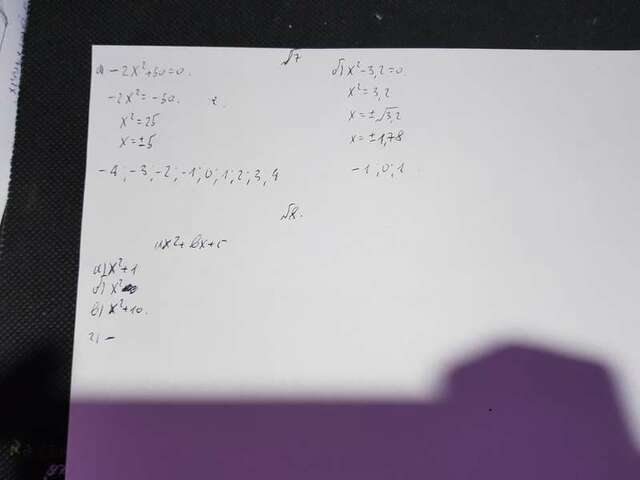 √7
а) -2x²+50=0.
-2x²=-50.
x²=25
x=±5
-4; -3, -2; -1; 0; 1; 2; 3, 4
б) x²-3,2=0.
x²=3,2
x=±√3,2
x=±1,78
-1, 0; 1
√8.
ax²+bx+c
а) x²+1
б) x²
в) x²+10.
г) -